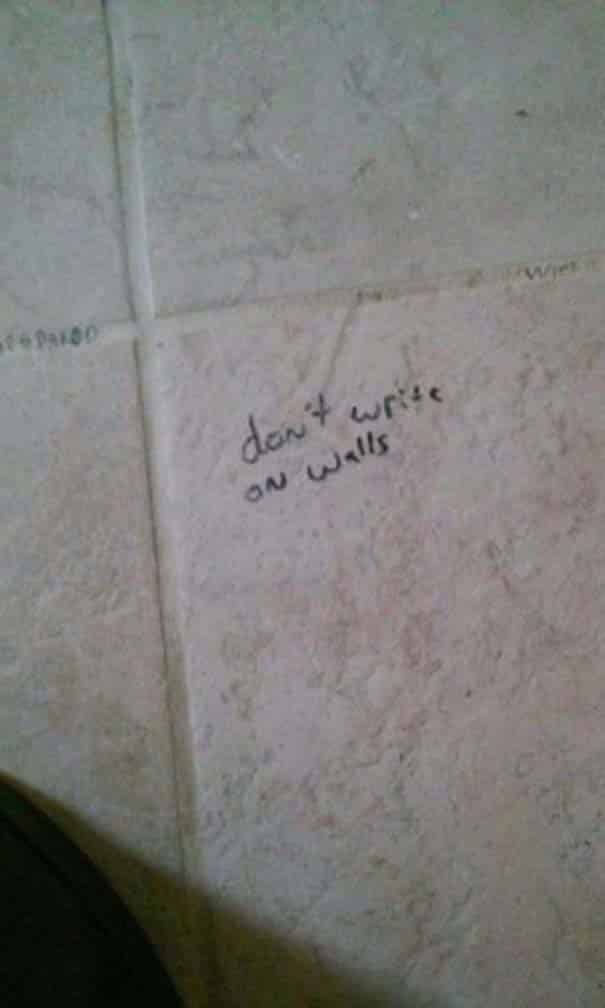 don't write
on walls